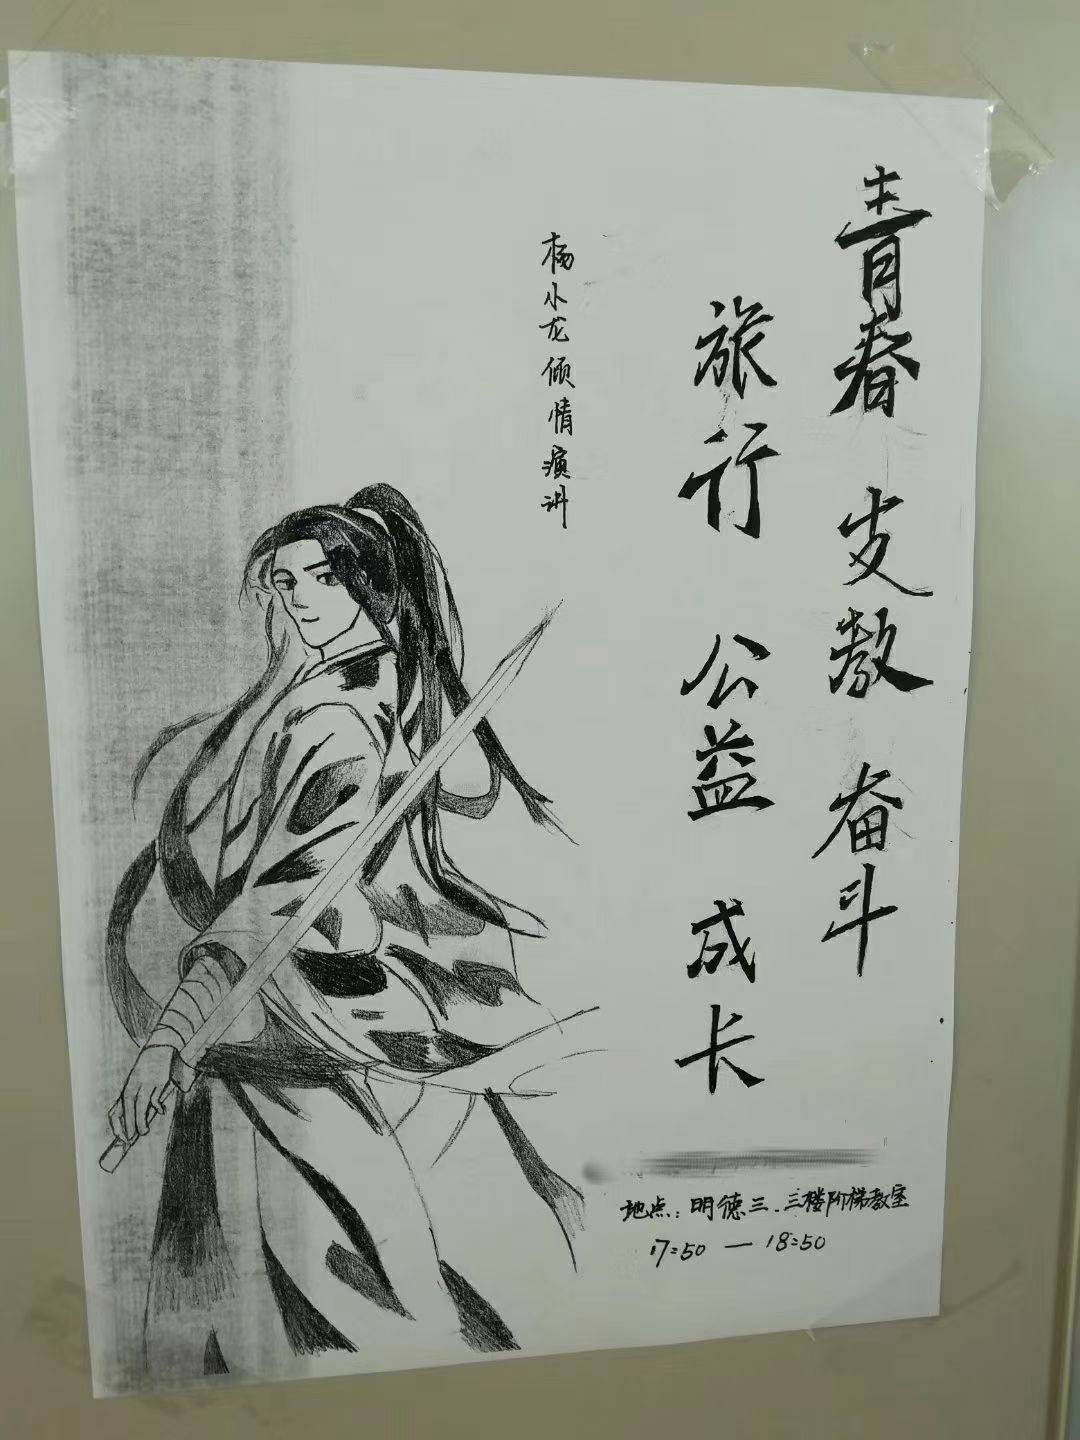 青春 支教 奋斗
旅行 公益 成长
杨小龙倾情演讲
地点：明德三.三楼阶梯教室
17:50 — 18:50